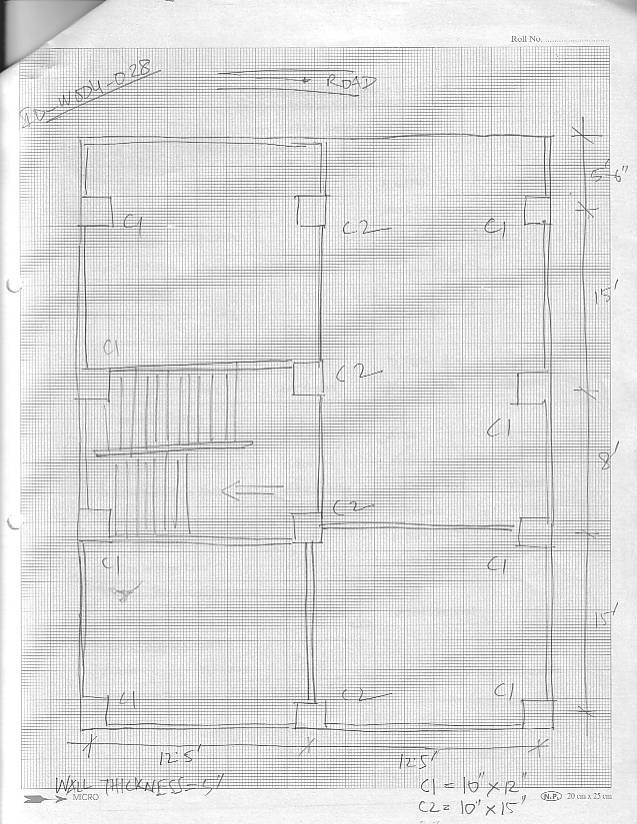 Roll No.
ID-W504-028
ROAD
5'-6"
C1
C2
C1
15'
C1
C2
C1
8'
C2
C1
C1
15'
C1
C2
C1
12.5'
12.5'
WALL THICKNESS=5"
C1 = 10" X 12"
C2 = 10" X 15"
MICRO
N.P. 20 cm x 25 cm